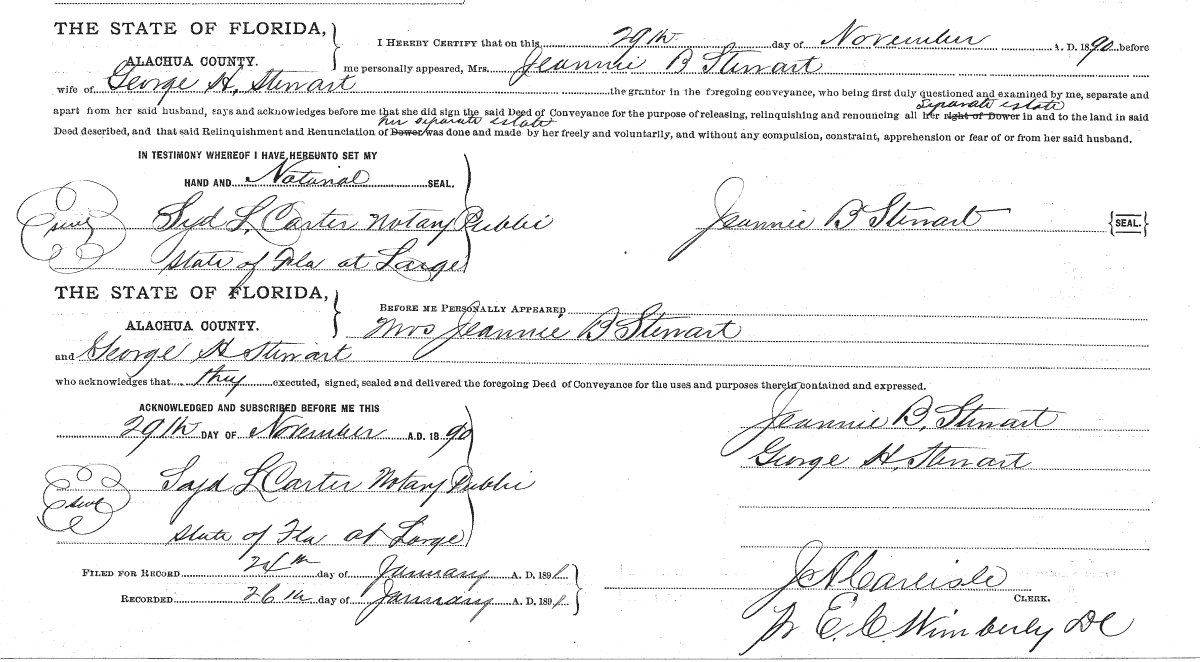 THE STATE OF FLORIDA,
ALACHUA COUNTY.
I HEREBY CERTIFY that on this 29th day of November A. D. 1890 before
me personally appeared, Mrs. Jeannie B Stewart
wife of George H. Stewart the grantor in the foregoing conveyance, who being first duly questioned and examined by me, separate and
separate estate
apart from her said husband, says and acknowledges before me that she did sign the said Deed of Conveyance for the purpose of releasing, relinquishing and renouncing all her right of Dower in and to the land in said
her separate estate
Deed described, and that said Relinquishment and Renunciation of Dower was done and made by her freely and voluntarily, and without any compulsion, constraint, apprehension or fear of or from her said husband.
IN TESTIMONY WHEREOF I HAVE HEREUNTO SET MY
HAND AND Notarial SEAL.
Syd L. Carter Notary Public
State of Fla at Large
Jeannie B Stewart {SEAL.}
THE STATE OF FLORIDA,
ALACHUA COUNTY.
BEFORE ME PERSONALLY APPEARED
Mrs Jeannie B Stewart
and George H Stewart
who acknowledges that they executed, signed, sealed and delivered the foregoing Deed of Conveyance for the uses and purposes therein contained and expressed.
ACKNOWLEDGED AND SUBSCRIBED BEFORE ME THIS
29th DAY OF November A.D. 1890
Jeannie B. Stewart
George H. Stewart
Syd L Carter Notary Public
State of Fla at Large
FILED FOR RECORD 26th day of January A. D. 1891.
RECORDED 26th day of January A. D. 1891.
J A Carlisle
CLERK.
E. C. Wimberly DC